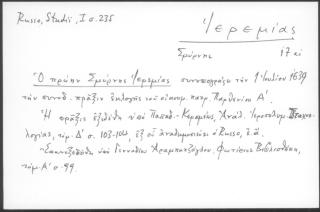 Russo, Studii, I σ. 235
Ἱερεμίας
Σμύρνης 17 αἰ
Ὁ πρώην Σμύρνης Ἱερεμίας συνυπογράφει τὴν 1 Ἰουλίου 1639
τὴν συνοδ. πράξιν ἐκλογῆς τοῦ οἰκουμ. πατρ. Παρθενίου Α΄.
Ἡ πράξις ἐξεδόθη ὑπὸ Παπαδ.-Κεραμέως, Ἀνάλ. Ἱεροσολυμ. Σταχυο-
λογίας, τόμ. Δ΄ σ. 103-104, ἐξ οὗ ἀναδημοσιεύει ὁ Russo, ἔ.ἀ.
Ἐπανεξεδόθη ὑπὸ Γενναδίου Ἀραμπατζόγλου, Φωτίειος Βιβλιοθήκη,
τόμ. Α΄ σ. 99.